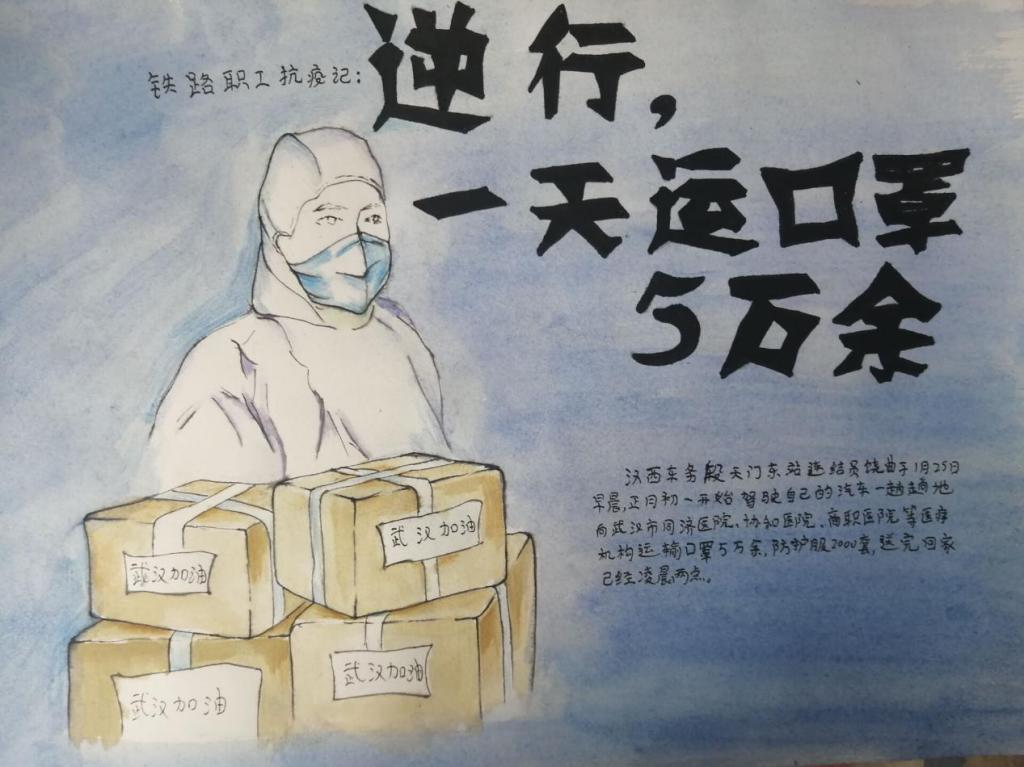 铁路职工抗疫记:
逆行,
一天运口罩
5万余
汉西车务段天门东站连结员饶曲于1月25日
早晨,正月初一开始驾驶自己的汽车一趟趟地
向武汉市同济医院、协和医院、商职医院等医疗
机构运输口罩5万余,防护服2000套,送完回家
已经凌晨两点。
武汉加油
武汉加油
武汉加油
武汉加油